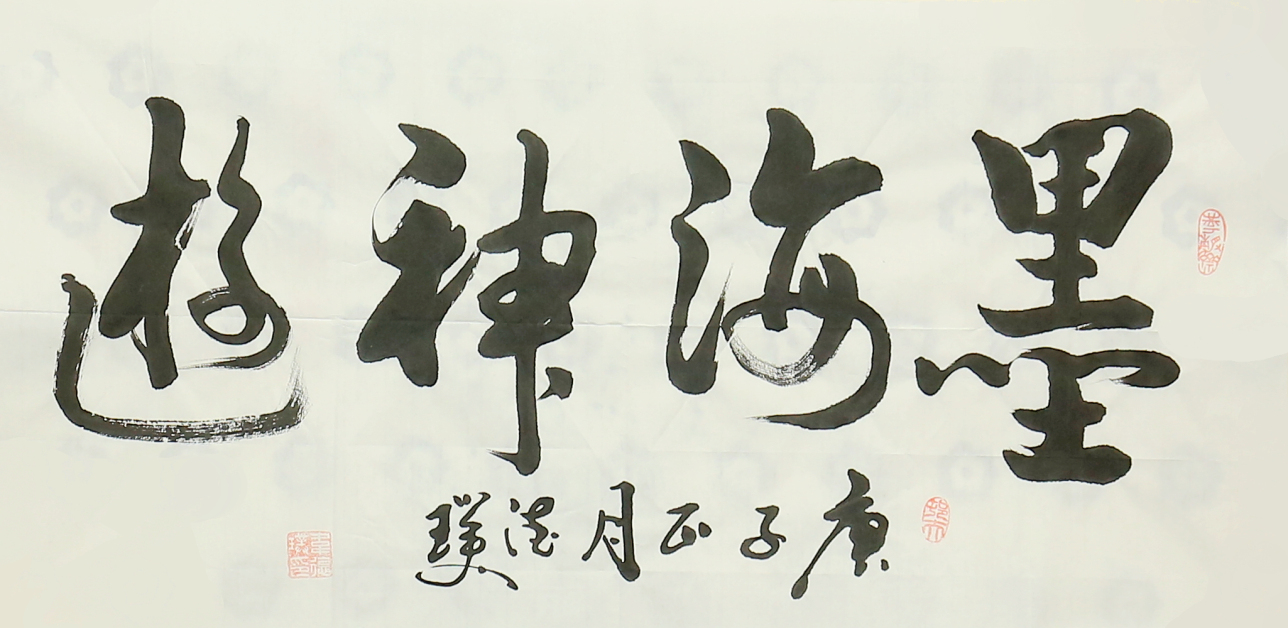 墨海神遊
庚子正月德璞